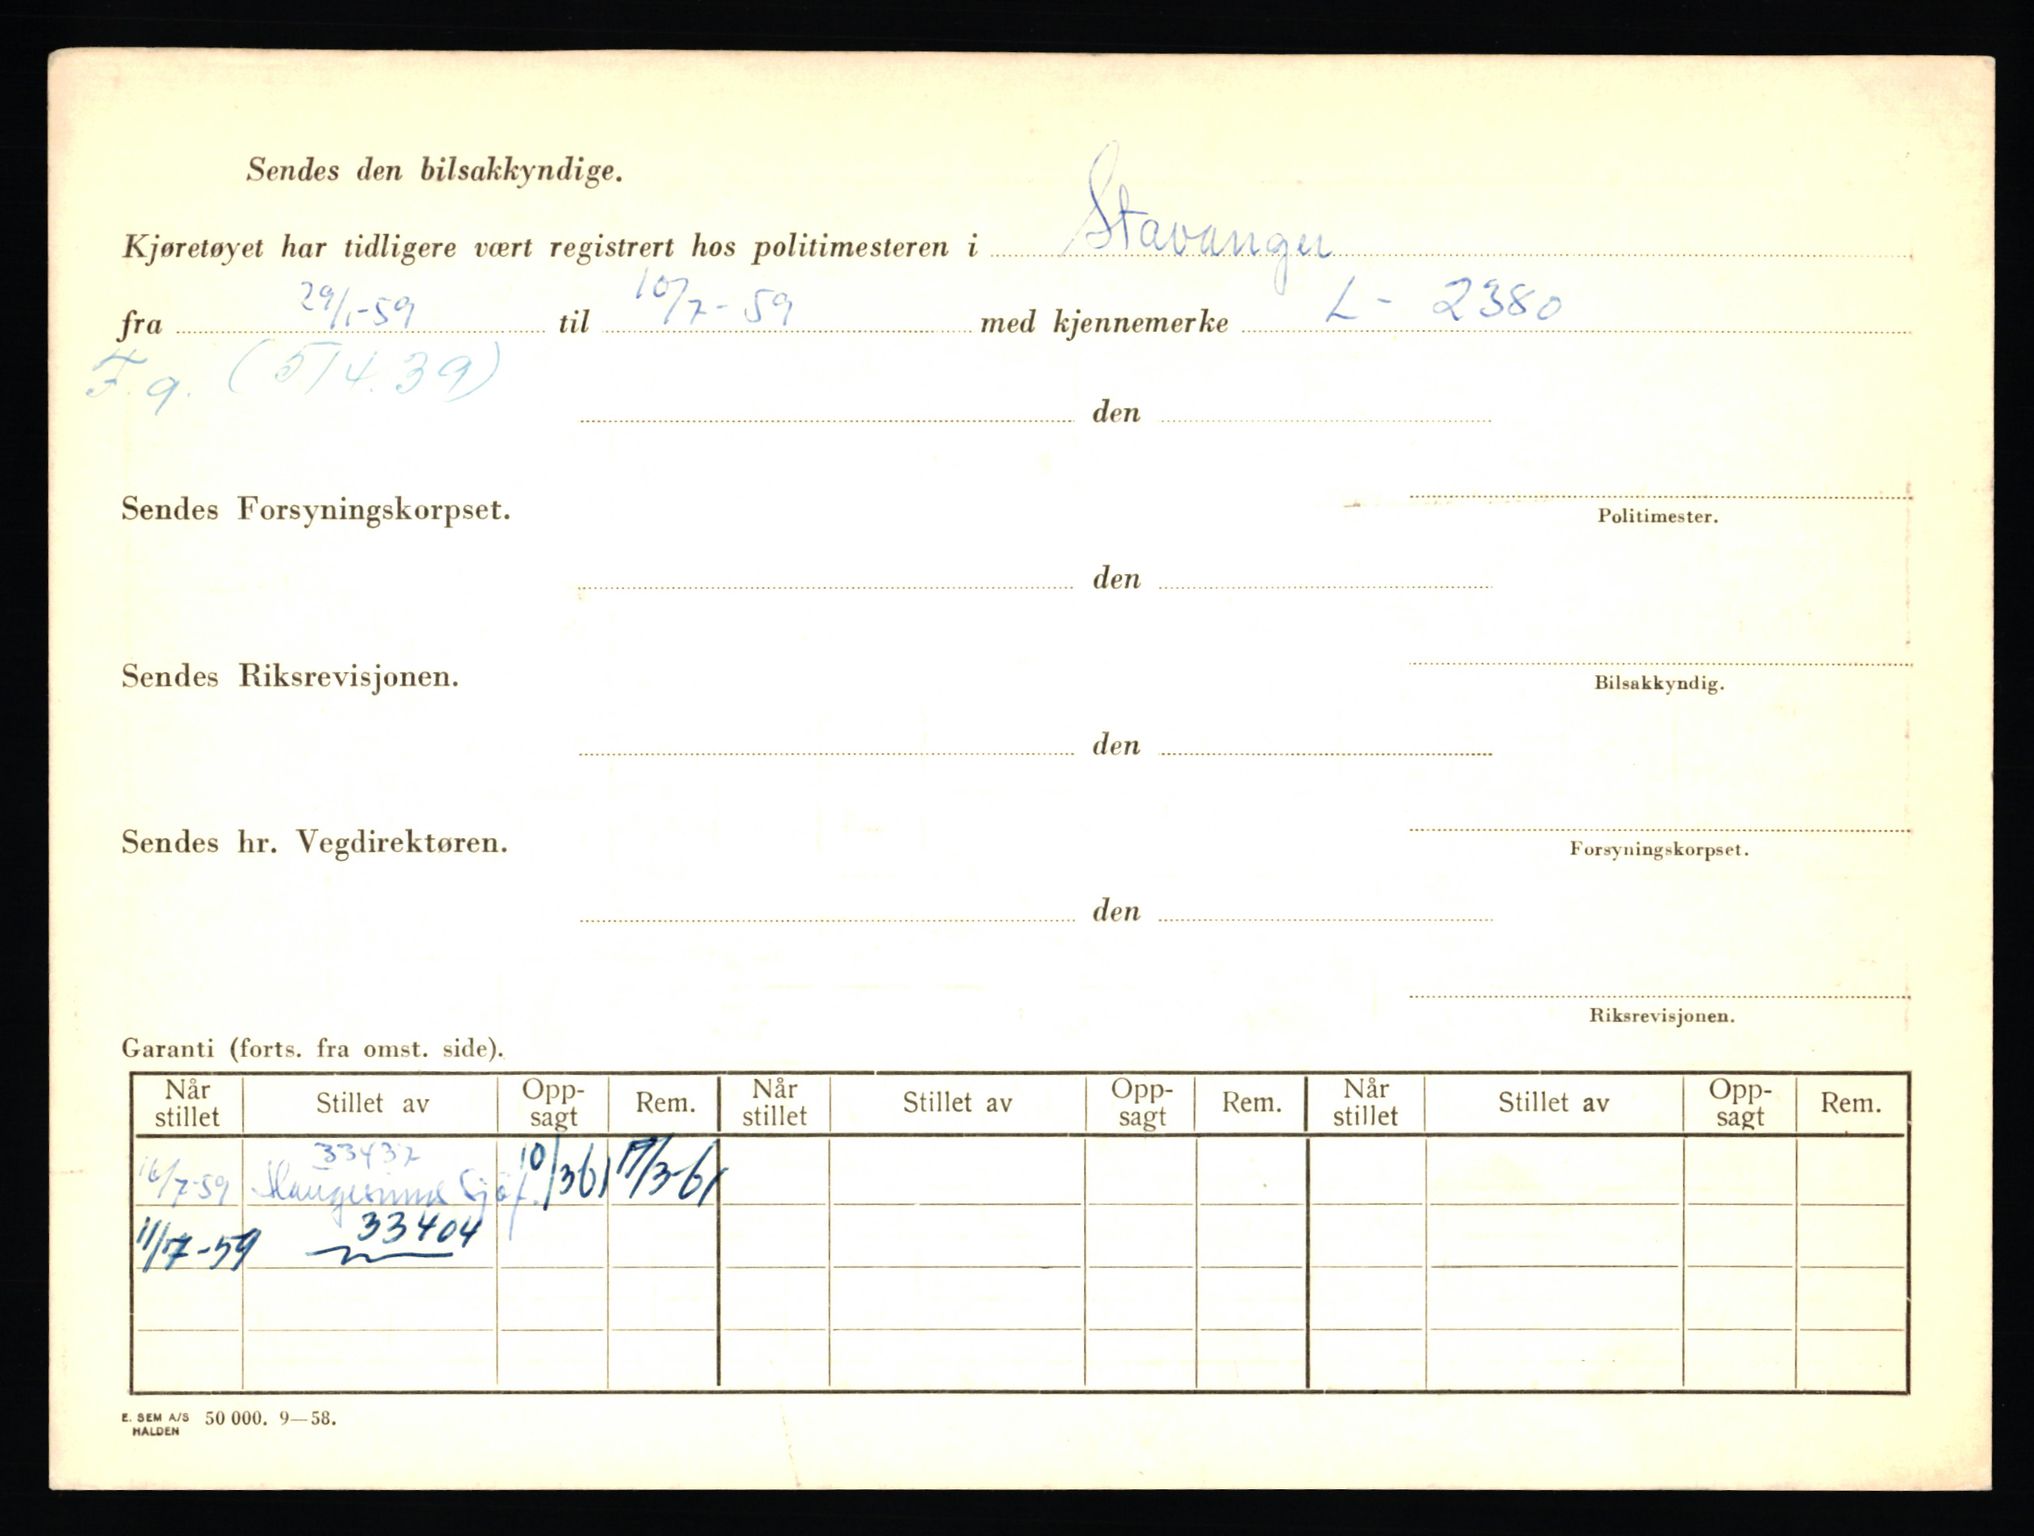 Sendes den bilsakkyndige.
Kjøretøyet har tidligere vært registrert hos politimesteren i Stavanger
fra 29/1-59 til 10/7-59 med kjennemerke L-2380
F.g. (5/4.39)
den
Sendes Forsyningskorpset.
Politimester.
den
Sendes Riksrevisjonen.
Bilsakkyndig.
den
Sendes hr. Vegdirektøren.
Forsyningskorpset.
den
Riksrevisjonen.
Garanti (forts. fra omst. side).
Når stillet Stillet av Opp-sagt Rem. Når stillet Stillet av Opp-sagt Rem. Når stillet Stillet av Opp-sagt Rem.
33437
16/7-59 Haugesunds Sjøf. 10/361 17/3-61
11/7-59 33404
E. SEM A/S 50 000. 9—58.
HALDEN